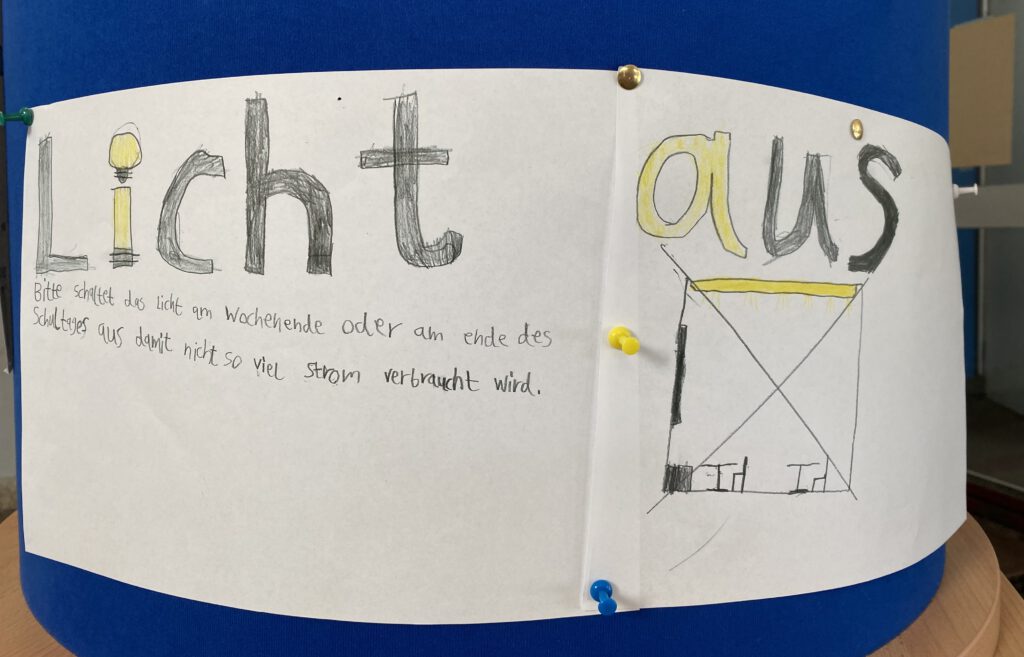 Licht aus
Bitte schaltet das Licht am Wochenende oder am ende des
Schultages aus damit nicht so viel strom verbraucht wird.